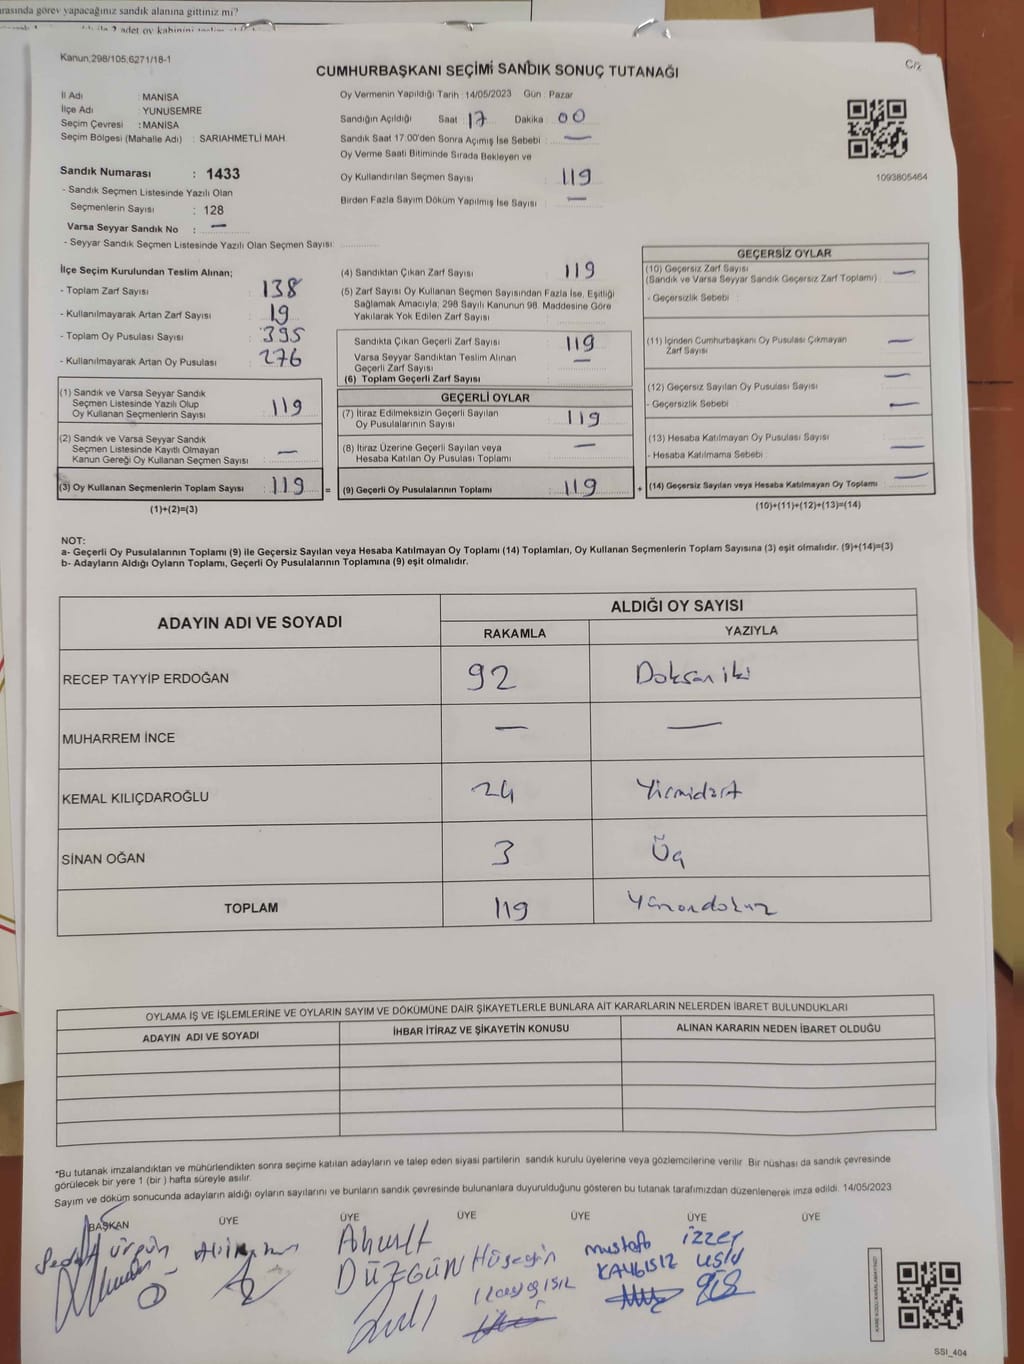 arasında görev yapacağınız sandık alanına gittiniz mi?
Kanun:298/105,6271/18-1
C/2
CUMHURBAŞKANI SEÇİMİ SANDIK SONUÇ TUTANAĞI
İl Adı : MANİSA
İlçe Adı : YUNUSEMRE
Seçim Çevresi : MANİSA
Seçim Bölgesi (Mahalle Adı) : SARIAHMETLİ MAH
Oy Vermenin Yapıldığı Tarih : 14/05/2023 Gün : Pazar
Sandığın Açıldığı Saat : 17 Dakika : 00
Sandık Saat 17:00'den Sonra Açımış İse Sebebi : —
Oy Verme Saati Bitiminde Sırada Bekleyen ve
Oy Kullandırılan Seçmen Sayısı : 119
Birden Fazla Sayım Döküm Yapılmış İse Sayısı : —
1093805464
Sandık Numarası : 1433
- Sandık Seçmen Listesinde Yazılı Olan
Seçmenlerin Sayısı : 128
Varsa Seyyar Sandık No : —
- Seyyar Sandık Seçmen Listesinde Yazılı Olan Seçmen Sayısı:
İlçe Seçim Kurulundan Teslim Alınan;
- Toplam Zarf Sayısı : 138
- Kullanılmayarak Artan Zarf Sayısı : 19
- Toplam Oy Pusulası Sayısı : 395
- Kullanılmayarak Artan Oy Pusulası : 276
(1) Sandık ve Varsa Seyyar Sandık
Seçmen Listesinde Yazılı Olup
Oy Kullanan Seçmenlerin Sayısı : 119
(2) Sandık ve Varsa Seyyar Sandık
Seçmen Listesinde Kayıtlı Olmayan
Kanun Gereği Oy Kullanan Seçmen Sayısı : —
(3) Oy Kullanan Seçmenlerin Toplam Sayısı : 119 =
(1)+(2)=(3)
(4) Sandıktan Çıkan Zarf Sayısı : 119
(5) Zarf Sayısı Oy Kullanan Seçmen Sayısından Fazla İse, Eşitliği
Sağlamak Amacıyla; 298 Sayılı Kanunun 98. Maddesine Göre
Yakılarak Yok Edilen Zarf Sayısı :
Sandıkta Çıkan Geçerli Zarf Sayısı : 119
Varsa Seyyar Sandıktan Teslim Alınan
Geçerli Zarf Sayısı : —
(6) Toplam Geçerli Zarf Sayısı :
GEÇERLİ OYLAR
(7) İtiraz Edilmeksizin Geçerli Sayılan
Oy Pusulalarının Sayısı : 119
(8) İtiraz Üzerine Geçerli Sayılan veya
Hesaba Katılan Oy Pusulası Toplamı : —
(9) Geçerli Oy Pusulalarının Toplamı : 119 +
GEÇERSİZ OYLAR
(10) Geçersiz Zarf Sayısı
(Sandık ve Varsa Seyyar Sandık Geçersiz Zarf Toplamı) : —
- Geçersizlik Sebebi :
(11) İçinden Cumhurbaşkanı Oy Pusulası Çıkmayan
Zarf Sayısı : —
(12) Geçersiz Sayılan Oy Pusulası Sayısı : —
- Geçersizlik Sebebi : —
(13) Hesaba Katılmayan Oy Pusulası Sayısı :
- Hesaba Katılmama Sebebi : —
(14) Geçersiz Sayılan veya Hesaba Katılmayan Oy Toplamı : —
(10)+(11)+(12)+(13)=(14)
NOT:
a- Geçerli Oy Pusulalarının Toplamı (9) ile Geçersiz Sayılan veya Hesaba Katılmayan Oy Toplamı (14) Toplamları, Oy Kullanan Seçmenlerin Toplam Sayısına (3) eşit olmalıdır. (9)+(14)=(3)
b- Adayların Aldığı Oyların Toplamı, Geçerli Oy Pusulalarının Toplamına (9) eşit olmalıdır.
ADAYIN ADI VE SOYADI
ALDIĞI OY SAYISI
RAKAMLA YAZIYLA
RECEP TAYYİP ERDOĞAN 92 Doksan iki
MUHARREM İNCE — —
KEMAL KILIÇDAROĞLU 24 Yirmidört
SİNAN OĞAN 3 Üç
TOPLAM 119 Yüzondokuz
OYLAMA İŞ VE İŞLEMLERİNE VE OYLARIN SAYIM VE DÖKÜMÜNE DAİR ŞİKAYETLERLE BUNLARA AİT KARARLARIN NELERDEN İBARET BULUNDUKLARI
ADAYIN ADI VE SOYADI İHBAR İTİRAZ VE ŞİKAYETİN KONUSU ALINAN KARARIN NEDEN İBARET OLDUĞU
*Bu tutanak imzalandıktan ve mühürlendikten sonra seçime katılan adayların ve talep eden siyasi partilerin sandık kurulu üyelerine veya gözlemcilerine verilir. Bir nüshası da sandık çevresinde
görülecek bir yere 1 (bir ) hafta süreyle asılır.
Sayım ve döküm sonucunda adayların aldığı oyların sayılarını ve bunların sandık çevresinde bulunanlara duyurulduğunu gösteren bu tutanak tarafımızdan düzenlenerek imza edildi. 14/05/2023
BAŞKAN ÜYE ÜYE ÜYE ÜYE ÜYE ÜYE
Ahmet
DÜZGÜN
Hüseyin
Mustafa
KAYGISIZ
İzzet
USLU
SSI_404